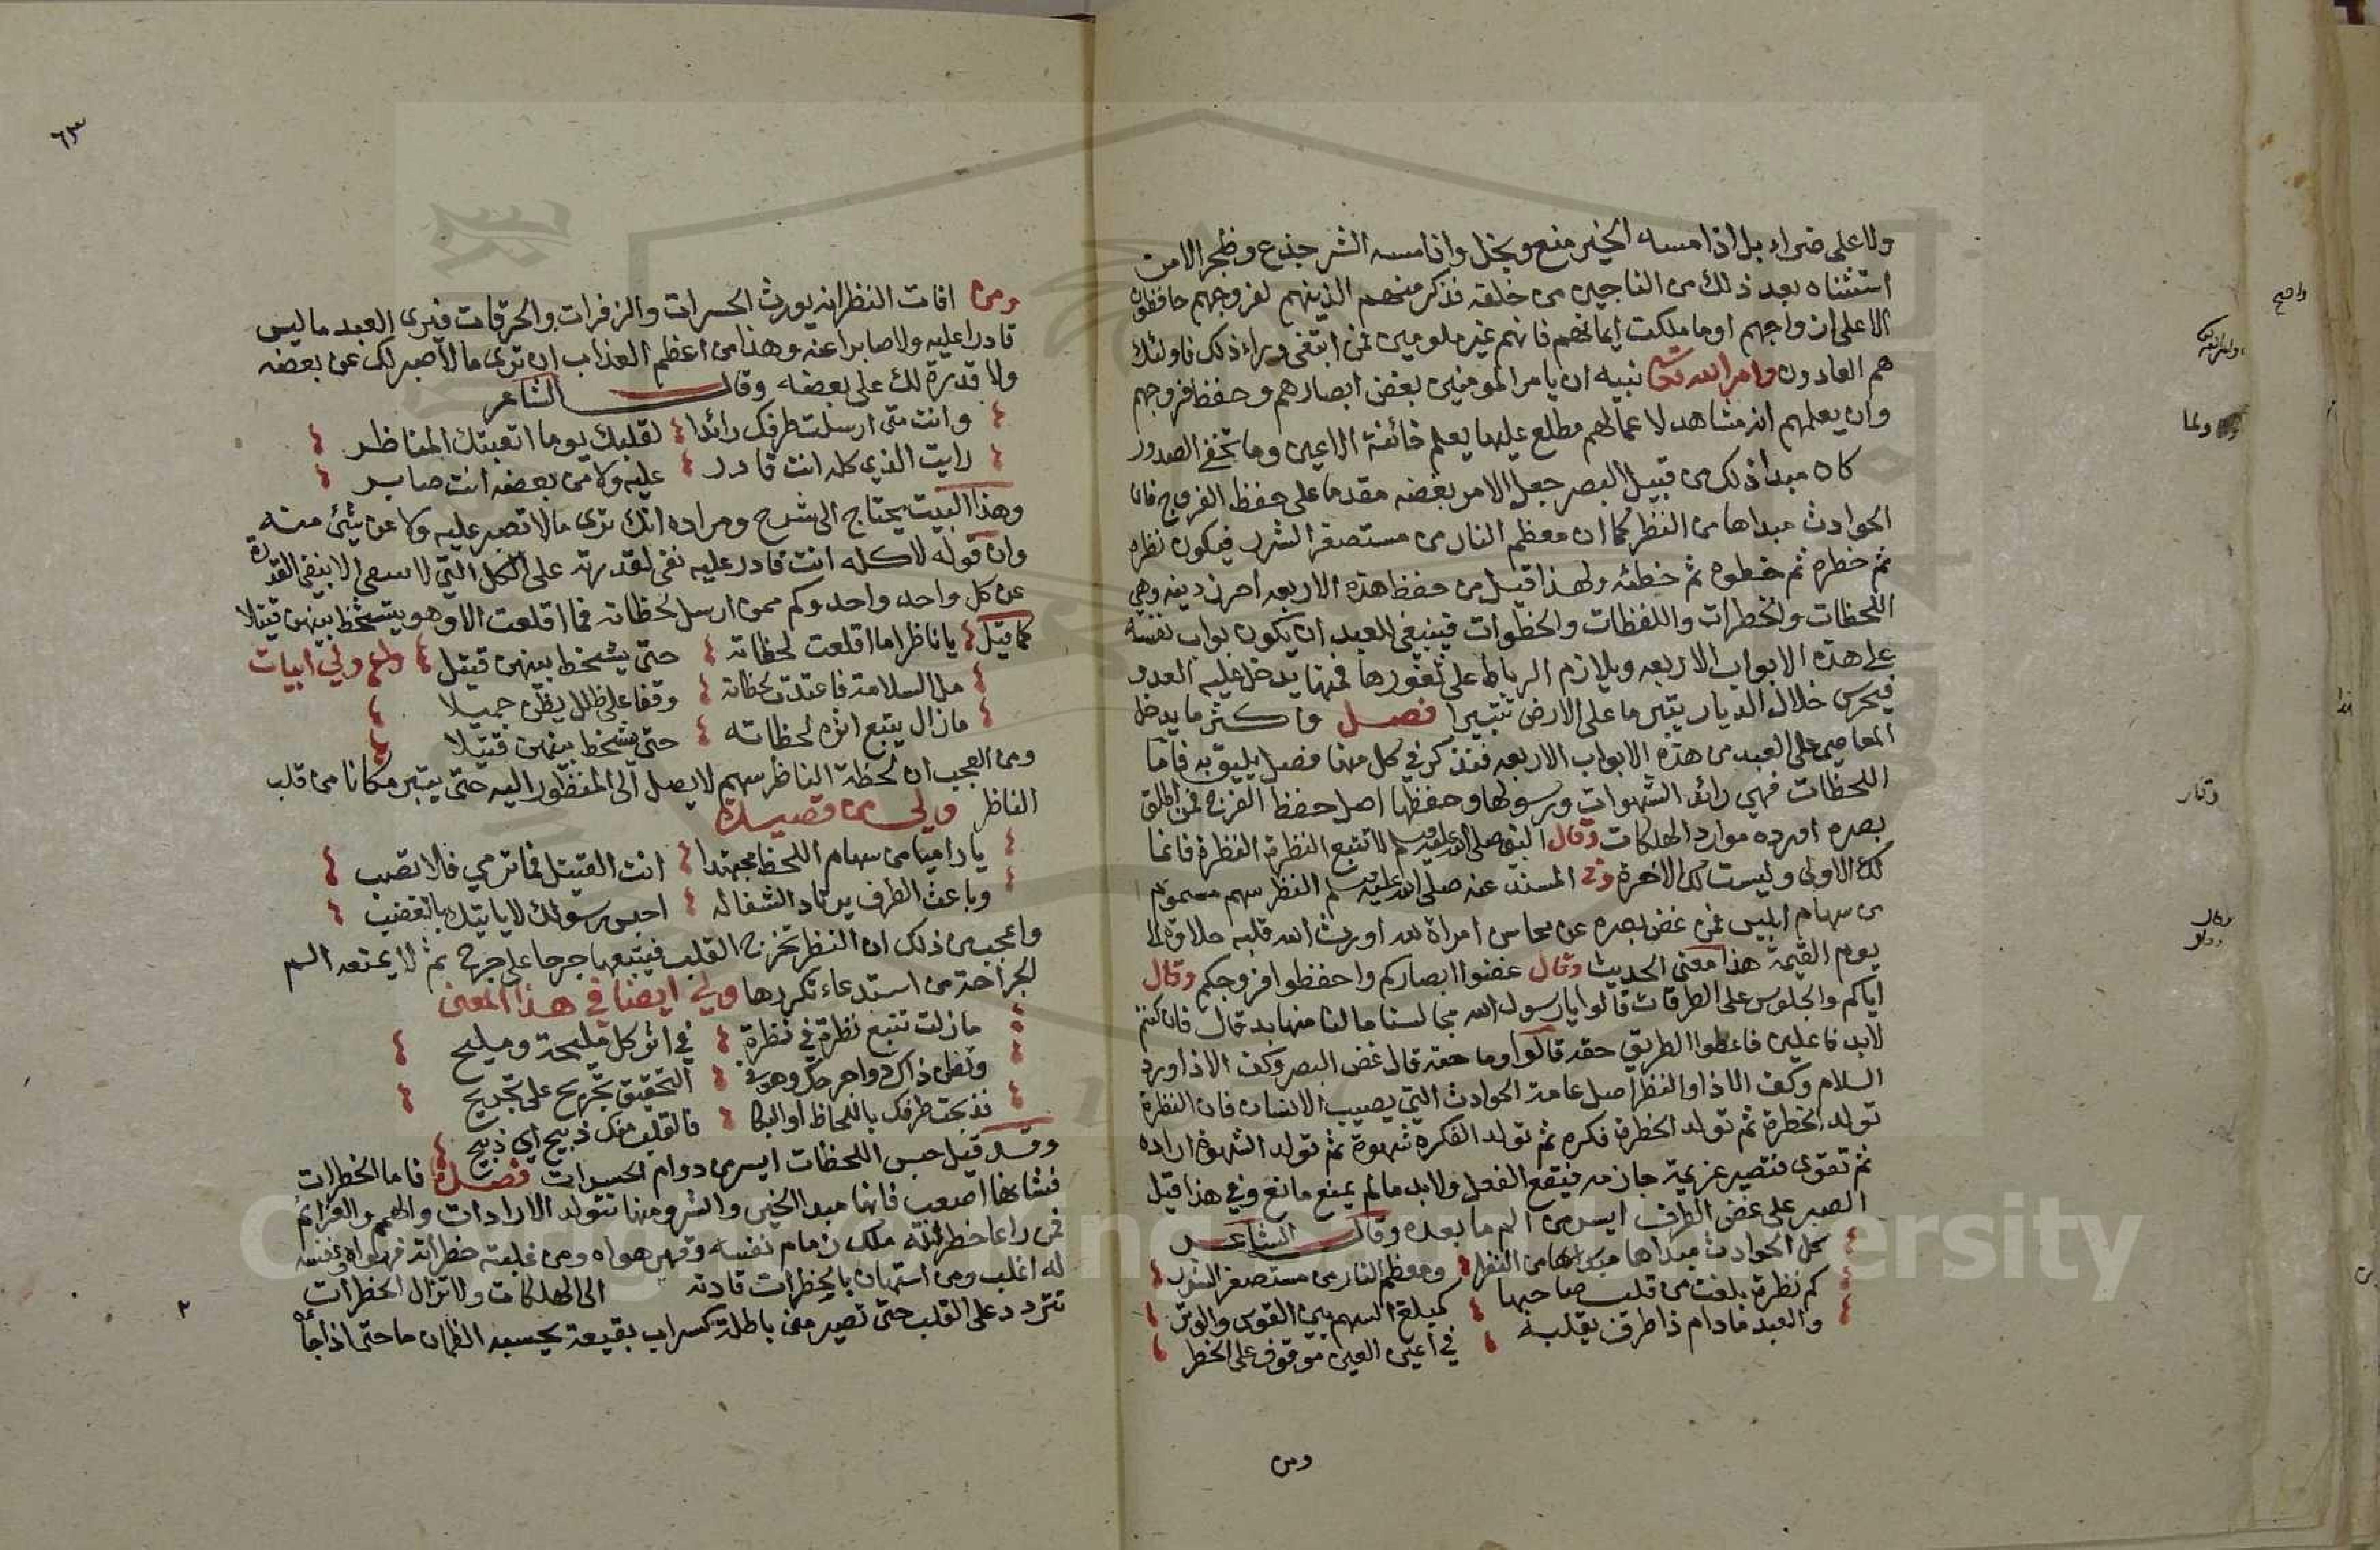 ولا على ضراء بل اذا مسه الخير منع وبخل واذا مسه الشر جذع وظجر الا من
استثناه بعد ذلك من الناجين من خلقه فذكر منهم الذين هم لفروجهم حافظون
الا على ازواجهم او ما ملكت ايمانهم فانهم غير ملومين فمن ابتغى وراء ذلك فاولئك
هم العادون وامر الله تعالى نبيه ان يامر المومنين بغض ابصارهم وحفظ فروجهم
وان يعلمهم انه مشاهد لاعمالهم مطلع عليها يعلم خائنة الاعين وما تخفي الصدور
كان مبدا ذلك من قبيل البصر جعل الامر بغضه مقدما على حفظ الفروج فان
الحوادث مبداها من النظر كما ان معظم النار من مستصغر الشرر فيكون نظره
ثم خطره ثم خطوه ثم خطئه ولهذا قيل من حفظ هذه الاربعه احرز دينه وهي
اللحظات والخطرات واللفظات والخطوات فينبغي للعبد ان يكون بواب نفسه
على هذه الابواب الاربعه ويلازم الرباط على ثغورها فمنها يدخل عليه العدو
فيجوس خلال الديار يتبر ما على الارض تتبيرا فصل واكثر ما يدخل
المعاصي على العبد من هذه الابواب الاربعه فنذكر في كل منها فصل يليق به فاما
اللحظات فهي رائد الشهوات ورسولها وحفظها اصل حفظ الفرج فمن اطلق
بصره اورده موارد الهلكات وقال النبي صلى الله عليه وسلم لا تتبع النظرة النظرة فانما
لك الاولى وليست لك الاخرة وفي المسند عنه صلى الله عليه وسلم النظر سهم مسموم
من سهام ابليس فمن غض بصره عن محاسن امراة لله اورث الله قلبه حلاوة الى
يوم القيمة هذا معنى الحديث وقال غضوا ابصاركم واحفظوا فروجكم وقال
اياكم والجلوس على الطرقات قالوا يا رسول الله مجالسنا ما لنا منها بد قال فان كنتم
لابد فاعلين فاعطوا الطريق حقه قالوا وما حقه قال غض البصر وكف الاذا ورد
السلام وكف الاذا والنظر اصل عامة الحوادث التي يصيب الانسان فان النظرة
تولد الخطرة ثم تولد الخطرة فكره ثم تولد الفكره شهوة ثم تولد الشهوة اراده
ثم تقوى فتصير عزيمة جازمه فيقع الفعل ولابد مالم يمنع مانع وفي هذا قيل
الصبر على غض الطرف ايسر من الم ما بعده وقال الشاعر
كل الحوادث مبداها من النظر ومعظم النار من مستصغر الشرر
كم نظرة بلغت من قلب صاحبها كمبلغ السهم بين القوس والوتر
والعبد مادام ذا طرف يقلبه في اعين العين موقوف على الخطر
ومن
٦٣
ومن افات النظر انه يورث الحسرات والزفرات والحرقات فيرى العبد ما ليس
قادرا عليه ولا صابرا عنه وهذا من اعظم العذاب ان ترى ما لا صبر لك عن بعضه
ولا قدرة لك على بعضه وقال الشاعر
وانت متى ارسلت طرفك رائدا لقلبك يوما اتعبتك المناظر
رايت الذي كله انت قادر عليه ولا من بعضه انت صابر
وهذا البيت يحتاج الى شرح ومراده انك ترى ما لا تصبر عليه ولا عن شئ منه
وان قوله لا كله انت قادر عليه نفى لقدرته على الكل التي لا الا بنفي القدرة
عن كل واحد واحد وكم ممن ارسل لحظاته فما اقلعت الا وهو يتشخط بينهن قتيلا
كما قيل يا ناظرا ما اقلعت لحظاته حتى يشخط بينهن قتيل ولي ابيات
مل السلامة فاغتدت لحظاته وقفا على ظلل يظن جميلا
مازال يتبع اثره لحظاته حتى يشخط بينهن قتيلا
ومن العجب ان لحظة الناظر سهم لا يصل الى المنظور اليه حتى يتبر مكانا من قلب
الناظر ولي من قصيدة
يا راميا من سهام اللحظ مجتهدا انت القتيل فما ترمي فلا تصب
وباعث الطرف يرتاد الشفاله احبس رسولك لا ياتيك بالغضب
واعجب من ذلك ان النظر تخرج القلب فيتبعها جرحا على جرح ثم لا يمنعه الم
الجراحة من استدعاء تكررها ولي ايضا في هذا المعنى
مازلت تتبع نظرة في نظرة في اثر كل مليحة ومليح
وتظن ذاك دواء جرحك وهو في التحقيق تجريح على تجريح
فذبحت طرفك باللحاظ او البكا فالقلب منك ذبيح اي ذبيح
وقد قيل حبس اللحظات ايسر من دوام الحسرات فصل فاما الخطرات
فشانها اصعب فانها مبدا الخير والشر ومنها تتولد الارادات والهمم والعزائم
فمن راعا خطراته ملك زمام نفسه وقهر هواه ومن غلبته خطراته فهواه ونفسه
له اغلب ومن استهان بالخطرات قادته الى الهلكات ولا تزال الخطرات
تتردد على القلب حتى تصير منى باطلة كسراب بقيعة يحسبه الظمان ما حتى اذا جاه
٢
Copyright © King Saud University